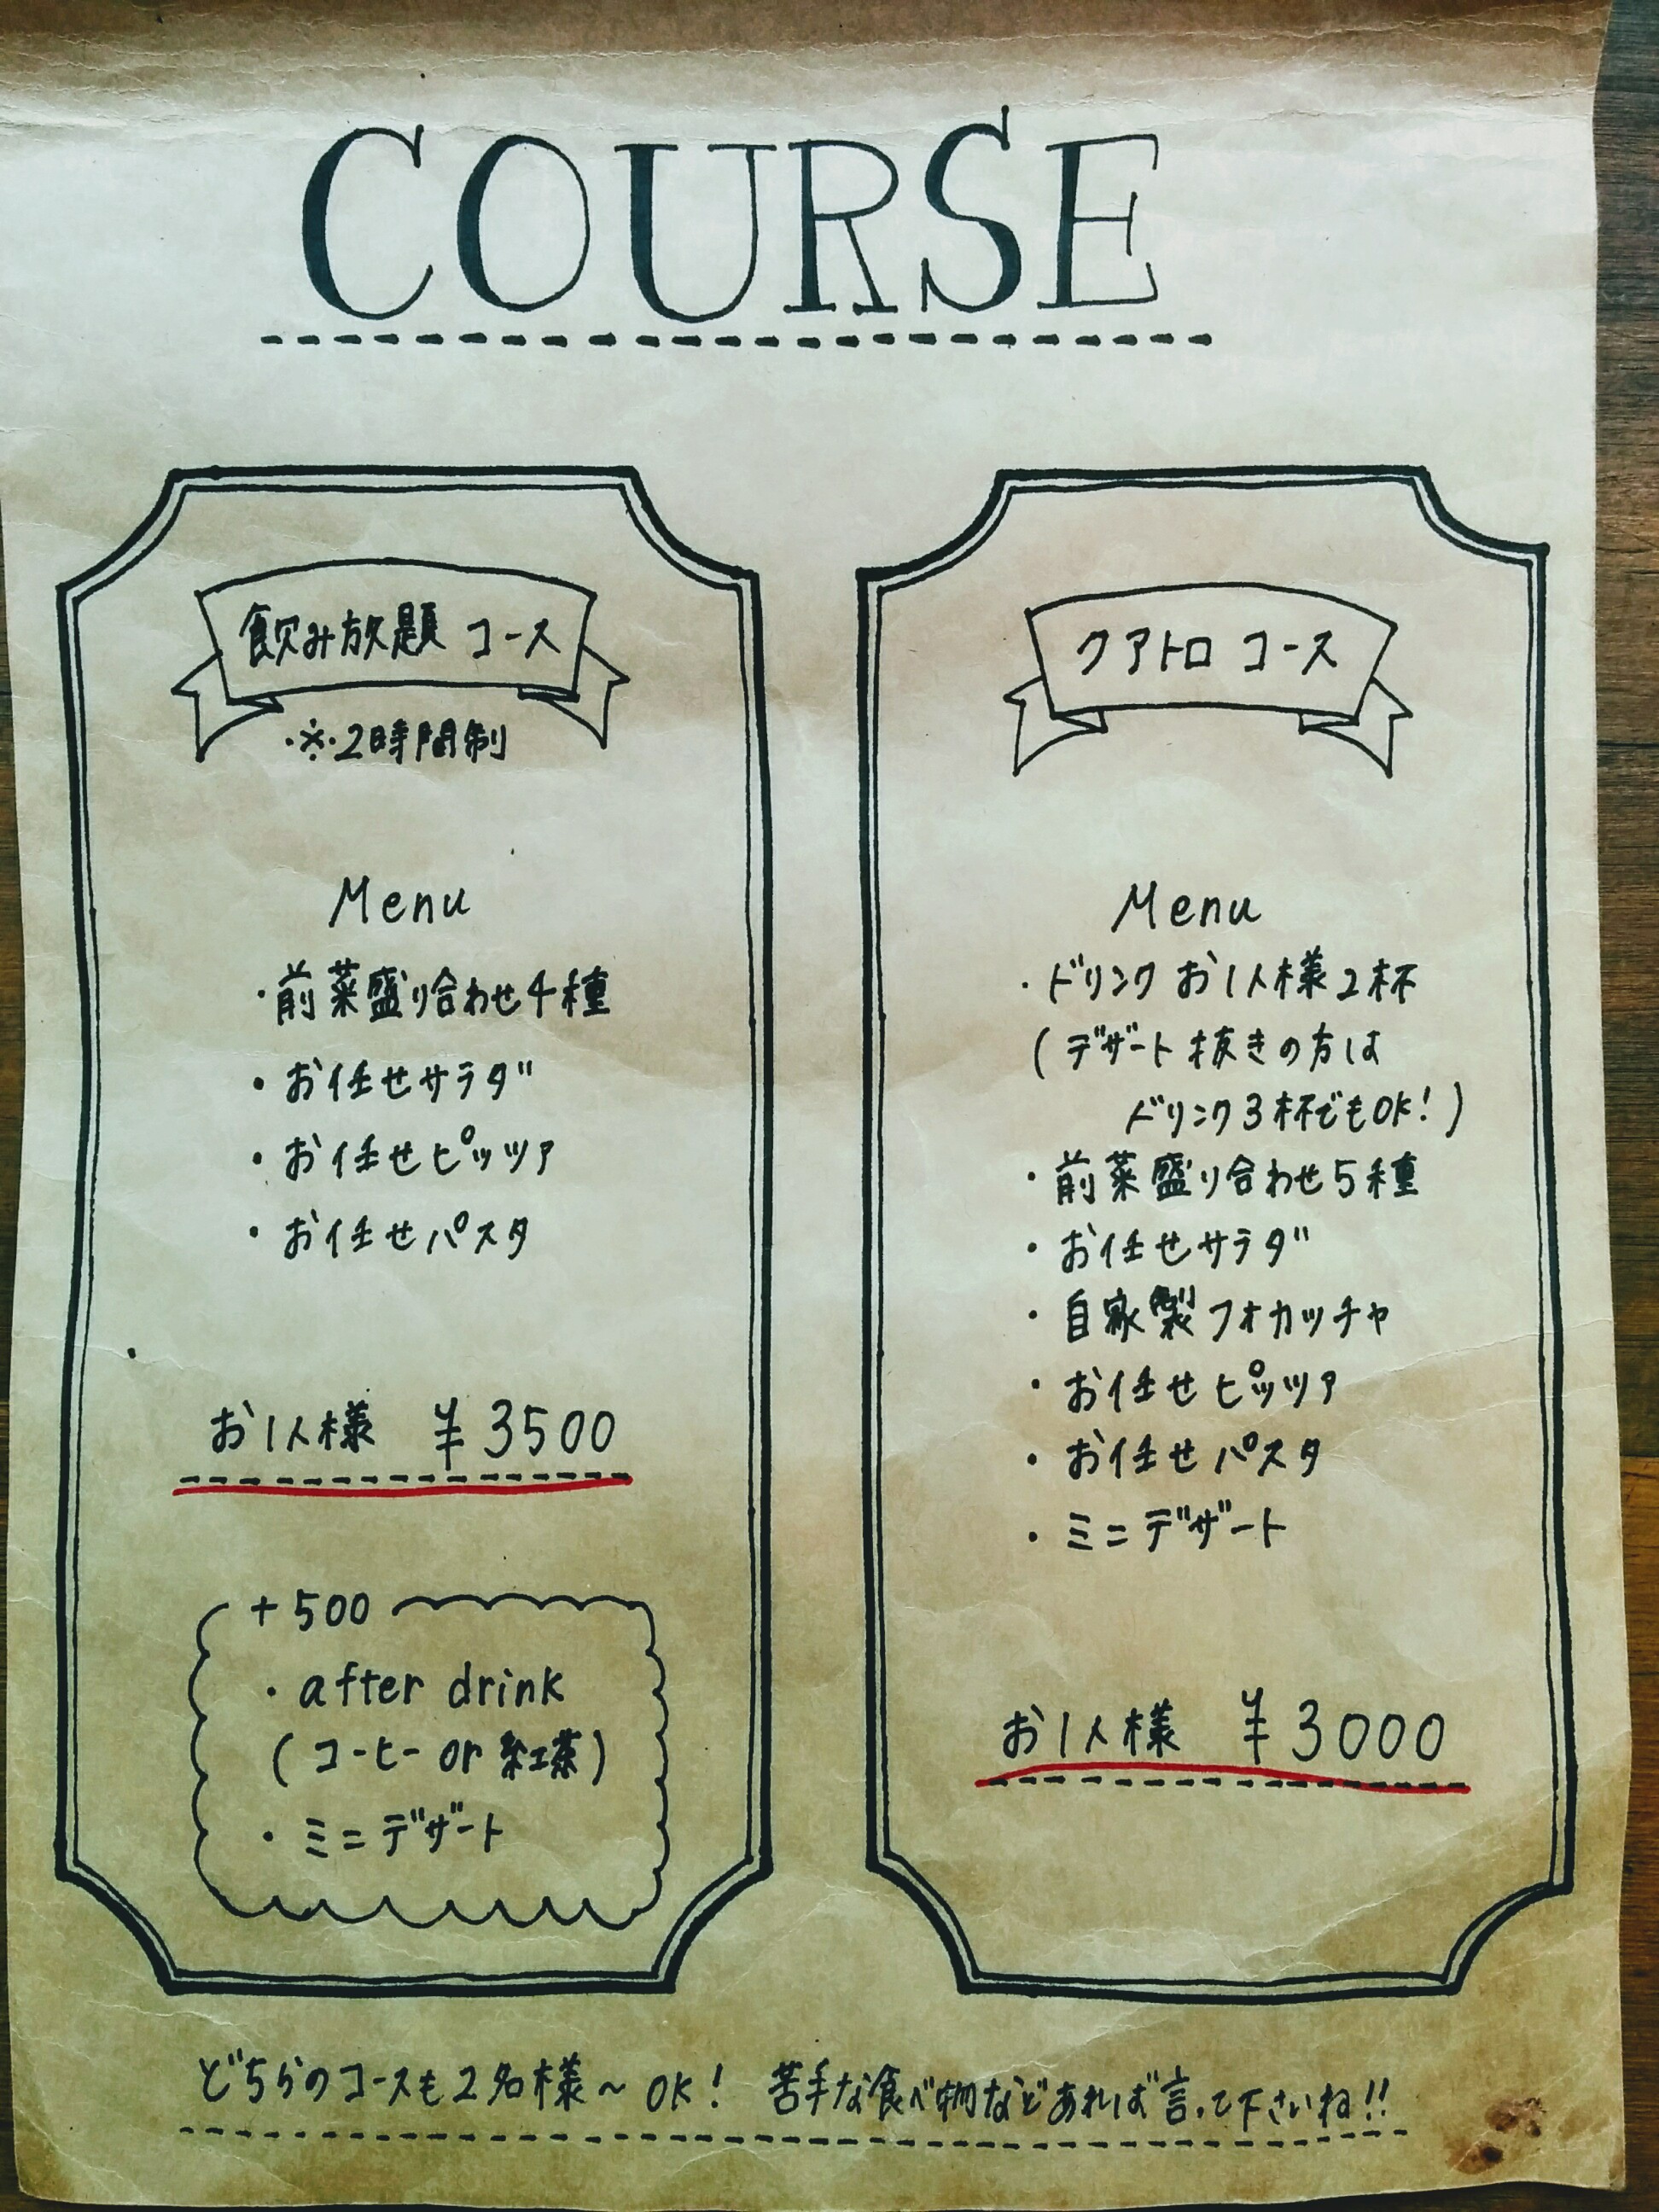 COURSE
飲み放題 コース
※2時間制
Menu
・前菜盛り合わせ4種
・お任せサラダ
・お任せピッツァ
・お任せパスタ
お1人様 ¥3500
+500
・after drink
(コーヒー or 紅茶)
・ミニデザート
クアトロ コース
Menu
・ドリンク お1人様2杯
(デザート抜きの方は
ドリンク3杯でもOK!)
・前菜盛り合わせ5種
・お任せサラダ
・自家製フォカッチャ
・お任せピッツァ
・お任せパスタ
・ミニデザート
お1人様 ¥3000
どちらのコースも2名様~OK! 苦手な食べ物などあれば言って下さいね!!